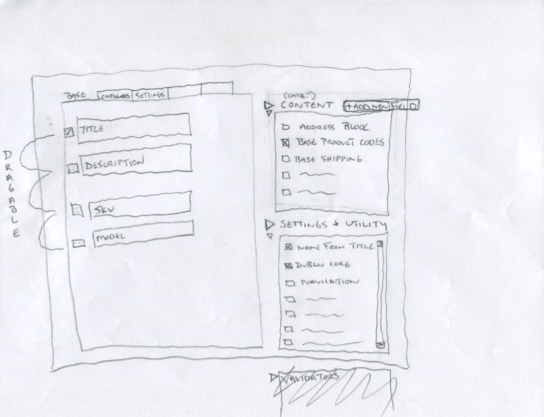 BASE
SETTINGS
TITLE
DESCRIPTION
SKU
MODEL
DRAGABLE
(DATA?)
CONTENT
+ADD NEW FIELD
ADDRESS BLOCK
BASE PRODUCT CODES
BASE SHIPPING
SETTINGS & UTILITY
NAME FROM TITLE
DUBLIN CORE
NAVIGATION
VALIDATORS